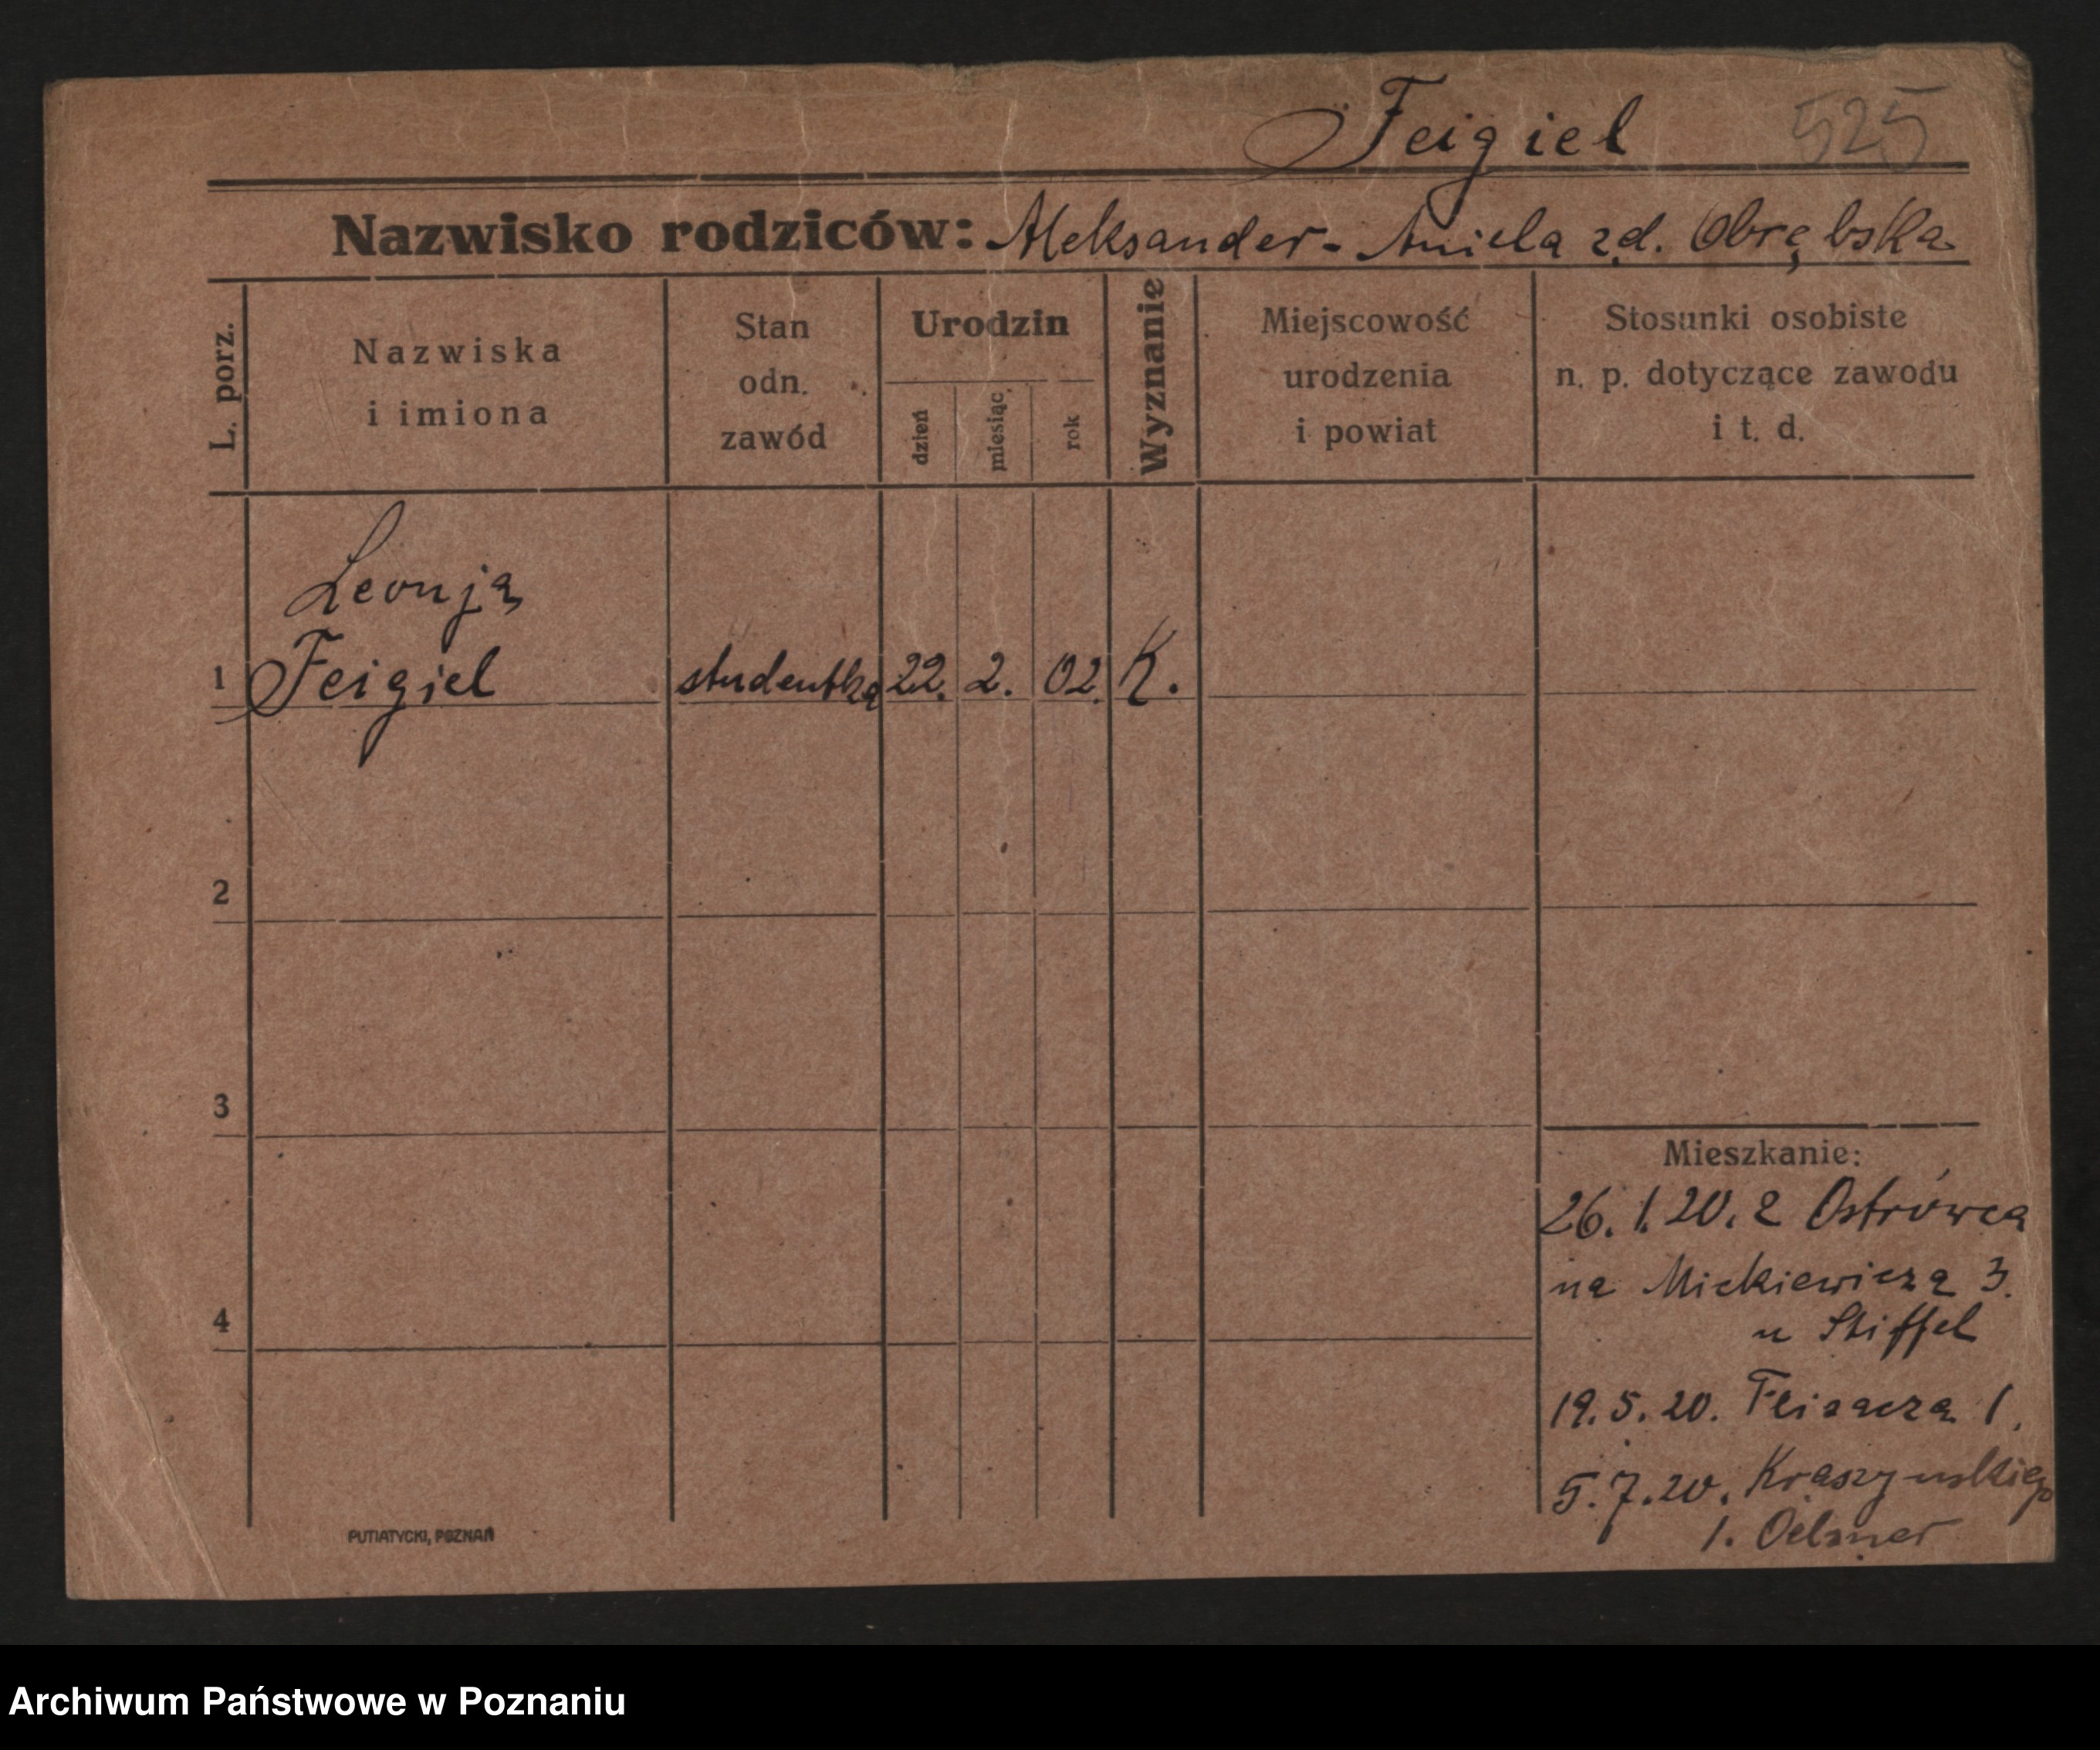 Feigiel 525
Nazwisko rodziców: Aleksander - Aniela zd. Obrębska
L. porz.
Nazwiska
i imiona
Stan
odn.
zawód
Urodzin
dzień
miesiąc
rok
Wyznanie
Miejscowość
urodzenia
i powiat
Stosunki osobiste
n. p. dotyczące zawodu
i t. d.
Leonja
1 Feigiel studentka 22. 2. 02. K.
2
3
4
Mieszkanie:
26. 1. 20. z Ostrówca
na Mickiewicza 3.
u Stiffel
19. 5. 20. 1.
5. 7. 20. Kraszyńskiego
1. Oelsner
PUTIATYCKI, POZNAŃ
Archiwum Państwowe w Poznaniu